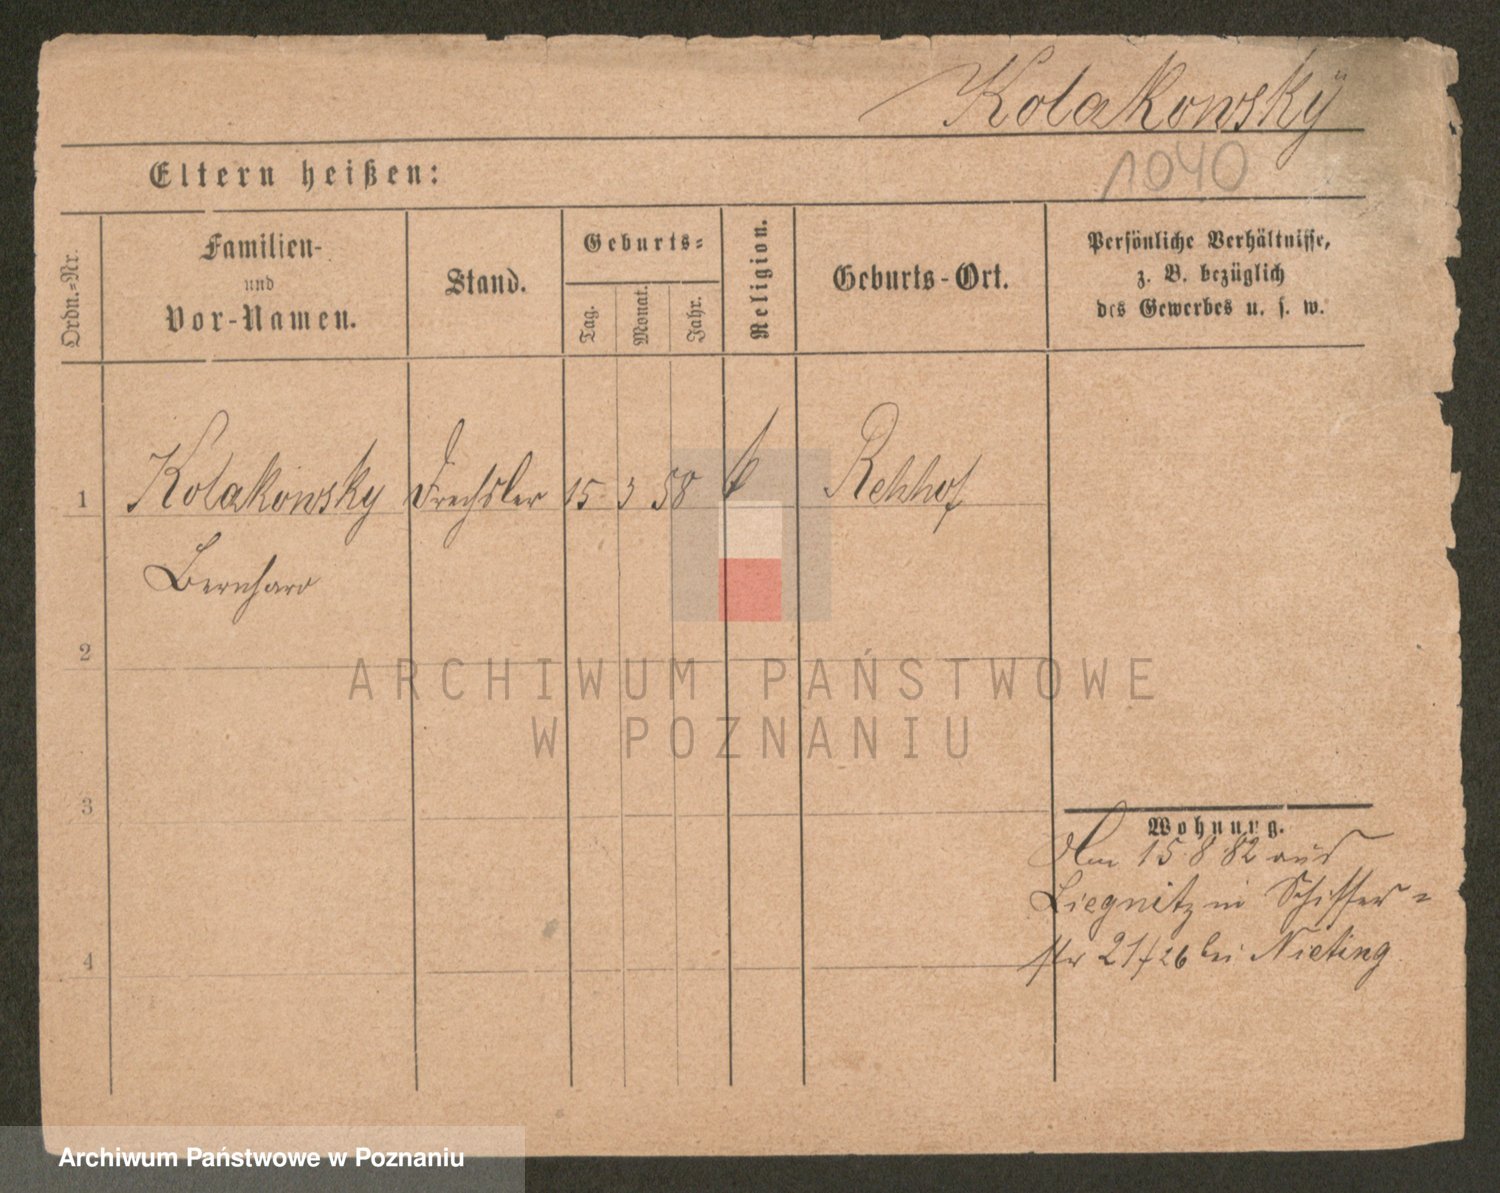 Kolakowsky
1040
Eltern heißen:
Ordn.-Nr.
Familien-
und
Vor-Namen.
Stand.
Geburts-
Tag.
Monat.
Jahr.
Religion.
Geburts-Ort.
Persönliche Verhältnisse,
z. B. bezüglich
des Gewerbes u. s. w.
1 Kolakowsky Drechsler 15 3 58 Rehhof
Bernhard
2
3
4
ARCHIWUM PAŃSTWOWE
W POZNANIU
Wohnung.
Am 15 8 82 aus
Liegnitz in Schiffer-
str 21/26 bei Nieting
Archiwum Państwowe w Poznaniu